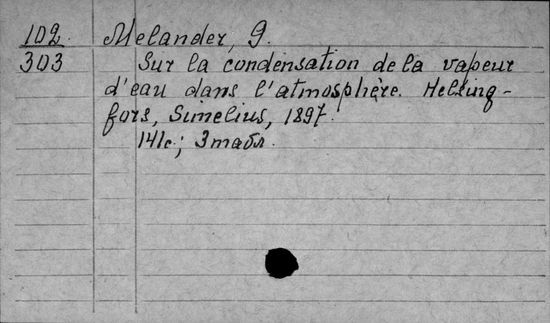 102 Melander, G.
303 Sur la condensation de la vapeur
d'eau dans l'atmosphère. Helsing-
fors, Simelius, 1897.
141c.; 3 табл.